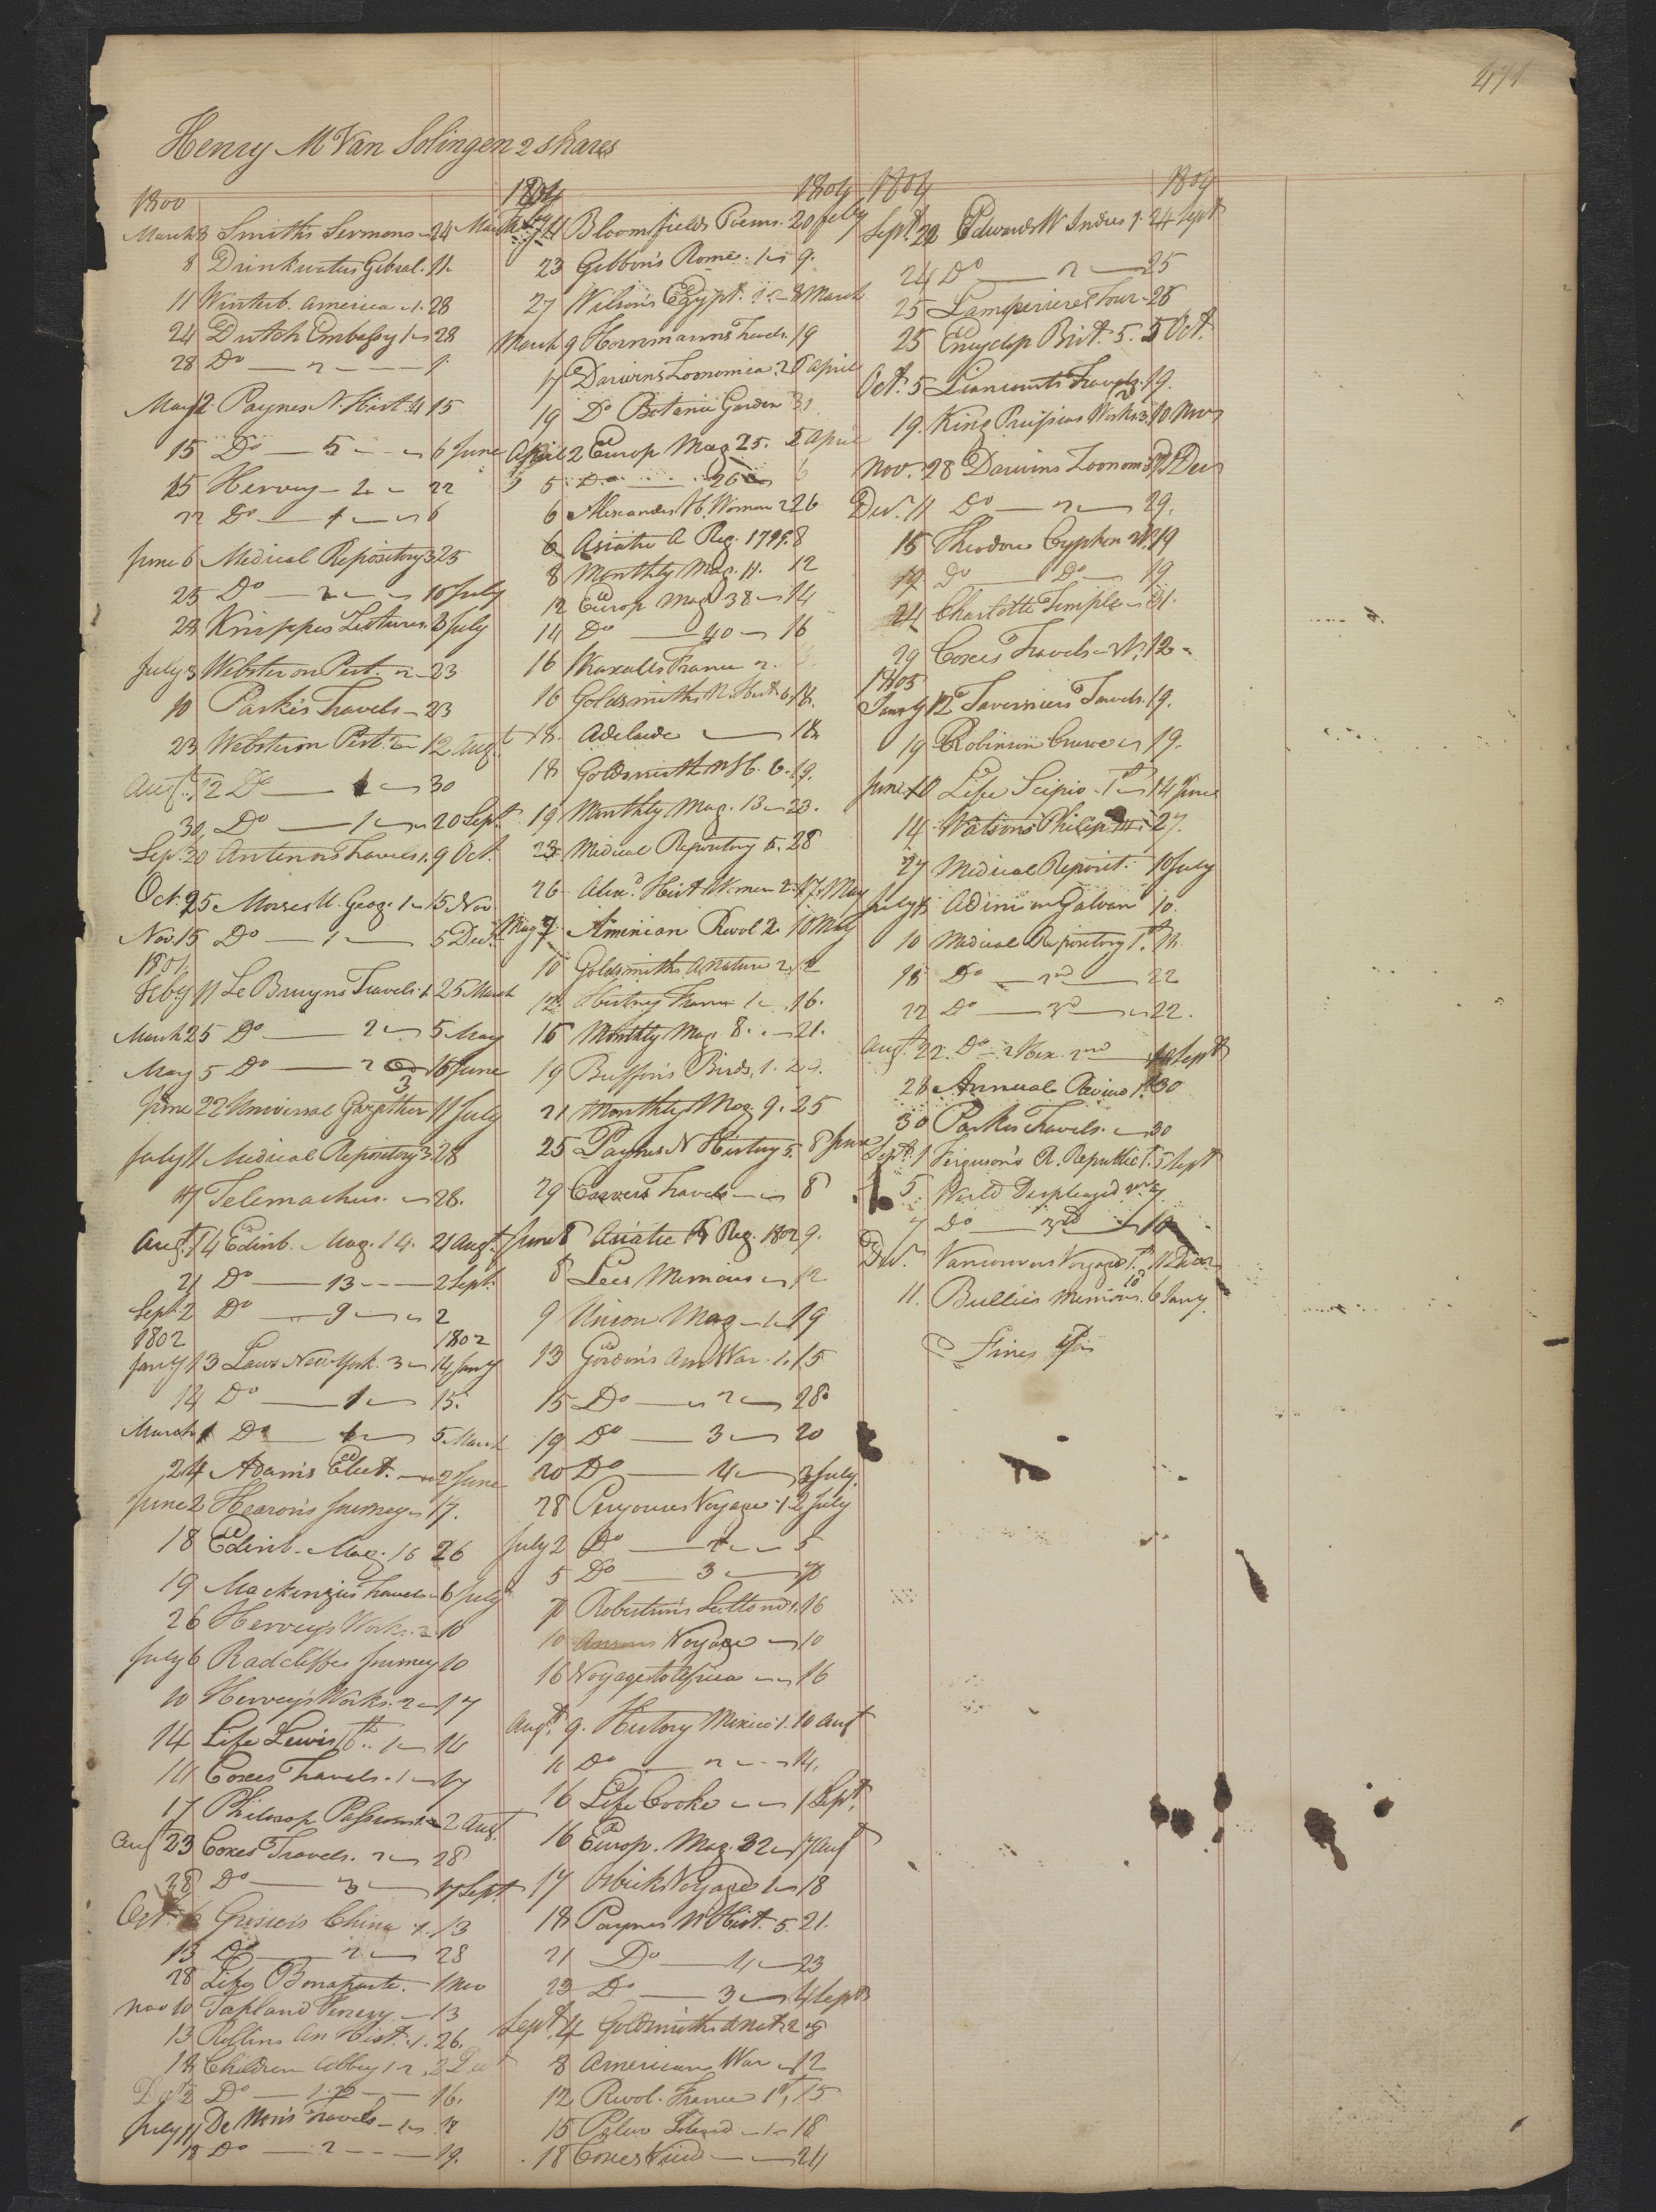 471
Henry M Van Solingen 2 shares
1800
March 8 Smiths Sermons 24 March
8 Drinkwaters Gibral. 11.
11 Winterb. America 1. 28
24 Dutch Embassy 1 28
28 Do 2
May 12 Paynes N. Hist. 4 15
15 Do 5 6 June
15 Hervey 2 22
22 Do 1 6
June 6 Medical Repository 3 25
25 Do 2 10 July
28 Knippes Lectures. 3 July
July 3 Webster on Pest. 2 23
10 Parkes Travels 23
23 Webster on Pest. 2 12 Augt
Augt. 12 Do 1 30
30 Do 1 20 Sept.
Sep. 20 Antenors Travels 1. 9 Oct.
Oct. 25 Morses U. Geog. 1 15 Nov.
Nov. 15 Do 1 5 Decr.
1801
Feby 11 Le Bruyns Travels 1. 25 March
March 25 Do 2 5 May
May 5 Do 2 3 15 June
June 22 Universal Gazetteer 11 July
July 11 Medical Repository 3. 28
17 Telemachus. 28.
Augt. 14 Edinb. Mag. 14. 21 Augt.
21 Do 13 2 Sept.
Sept. 2 Do 9 2
1802 1802
Jany 13 Laws New York. 3 14 Jany
14 Do 1 15.
March 1 Do 1 5 March
24 Adams Elect. 2 June
June 2 Hearon's Journey 17.
18 Edinb. Mag. 16 26
19 Mackenzies Travels 6 July
26 Hervey's Works. 2 10
July 6 Radcliffes Journey 10
10 Hervey's Works. 2 17
14 Life Lewis 16th.. 1 14
14 Coxes Travels. 1 17
17 Philosop. 2 Aug.
Augt 23 Coxes Travels. 2 28
28 Do 3 17 Sept.
Oct. 6 Grosiers China 1. 13
13 Do 2 28
28 Life Bonaparte. 1 Nov
Nov 10 Tapland Venery 13
13 Rollins An Hist. 1. 26.
18 Children Abbey 1 2. 2 Dec
Do 16.
July 11 De Non's Travels 1 18
18 Do 2 19.
1804 1804
Feby 14 Bloomfields Poems. 20 Feby
23 Gibbon's Rome. 1 9.
27 Wilson's Egypt. 1. 8 March
March 9 Hornmanns Travels. 19
17 Darwins Zoonomia. 2 6 April
19 Do Botanic Garden 31
April 2 Europ Mag 25. 5 April
5 Do 26 6
6 Alexander H. Woman 2 26
6 Asiatic A Reg. 1799. 8
8 Monthly Mag. 11. 12
12 Europ Mag 38 14
14 Do 40 16
16 Wraxalls France 2.
16 Goldsmiths N. Hist. 6. 18.
18. Adelaide 18
18 Goldsmith N H. 6. 19.
19 Monthly Mag. 13 23.
23 Medical Repository 5. 28
26 Alexr. Hist. Women 2. 17. May
May 7 American Revol 2. 10 May
10 Goldsmiths A Nature 2. 12
12. History France 1 16.
16 Monthly Mag 8. 21.
19 Buffon's Birds, 1.
21 Monthly Mag. 9. 25
25 Paynes N History 5. 8 June
29 Carvers Travels 8
June 8 Asiatic A Reg. 1802 9.
8 Lees Memoirs 12
9 Union Mag 1 19
13 Gordon's Am War. 1. 15
15 Do 2 28
19 Do 3 20
20 Do 4 2 July.
28 Peryouses Voyage. 1. 2 July
July 2 Do 2 5
5 Do 3 10
10 Robertson's Scotland 1. 16
10 Ansons Voyage 10
16 Voyage to Africa 16
Augt. 9. History Mexico 1. 10 Augt
11 Do 2 14.
16 Life Cooke 1 Sept.
16 Europ. Mag. 32 17 Augt
17 Voyage 1 18
18 Paynes N Hist. 5. 21.
21 Do 4 23
23 Do 3 4 Sept
Sept. 4 Goldsmiths A Nat. 2 8
8 American War 12
12 Revol. France 1st. 15
15 Pelew Island 1 18
18 Coxes View 24
1804 1804
Sept. 22 Edwards W Indies 1. 24 Sept
24 Do 2 25
25 Lamperieres Tour 25
25 Encyclop Brit. 5. 5 Oct.
Oct. 5 Liancourts Travels 2 19.
19. King Prussias Works 3. 10 Nov
Nov. 28 Darwins Zoonom Decr
Decr. 11 Do 2 29.
15 Theodore Cyphon 19
19 Do Do 19
24 Charlotte Temple 31.
29 Coxes Travels 12
1805
Jany 12 Taverniers Travels. 19.
19 Robinson Crusoe 19.
June 10 Life Scipio. 1st 14 June
14 Watson's Philip. 27.
27 Medical Reposit. 10 July
July Adini on Galvan 10.
10 Medical Repository 1st. 18.
18 Do 2nd 22
22 Do 3d 22.
Augt. 22. Do 2 Hex. 2nd 10 Sept
28 Annual Review 1st 30
30 Parkes Travels. 30
Sept. 1 Ferguson's R. Republic 1. 5 Sept
5. World Displayed 2nd 7.
7 Do 3rd 10
Decr. Vancouvers Voyage 1st. 11 Decr
11. Bullies Memoirs. 6 Jany.
Fines